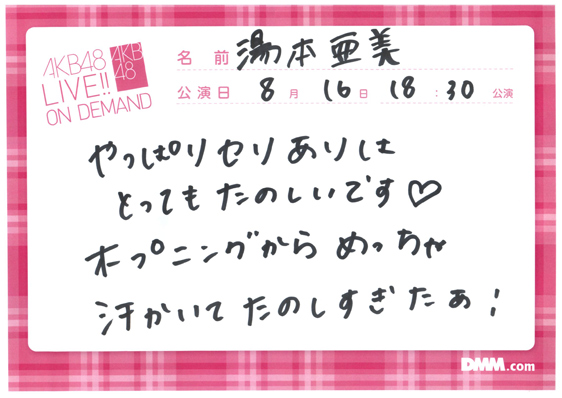 AKB48
LIVE!!
ON DEMAND
AKB
48
名前 湯本亜美
公演日 8月16日 18:30公演
やっぱりセリありは
とってもたのしいです♡
オープニングからめっちゃ
汗かいてたのしすぎたぁ!
DMM.com